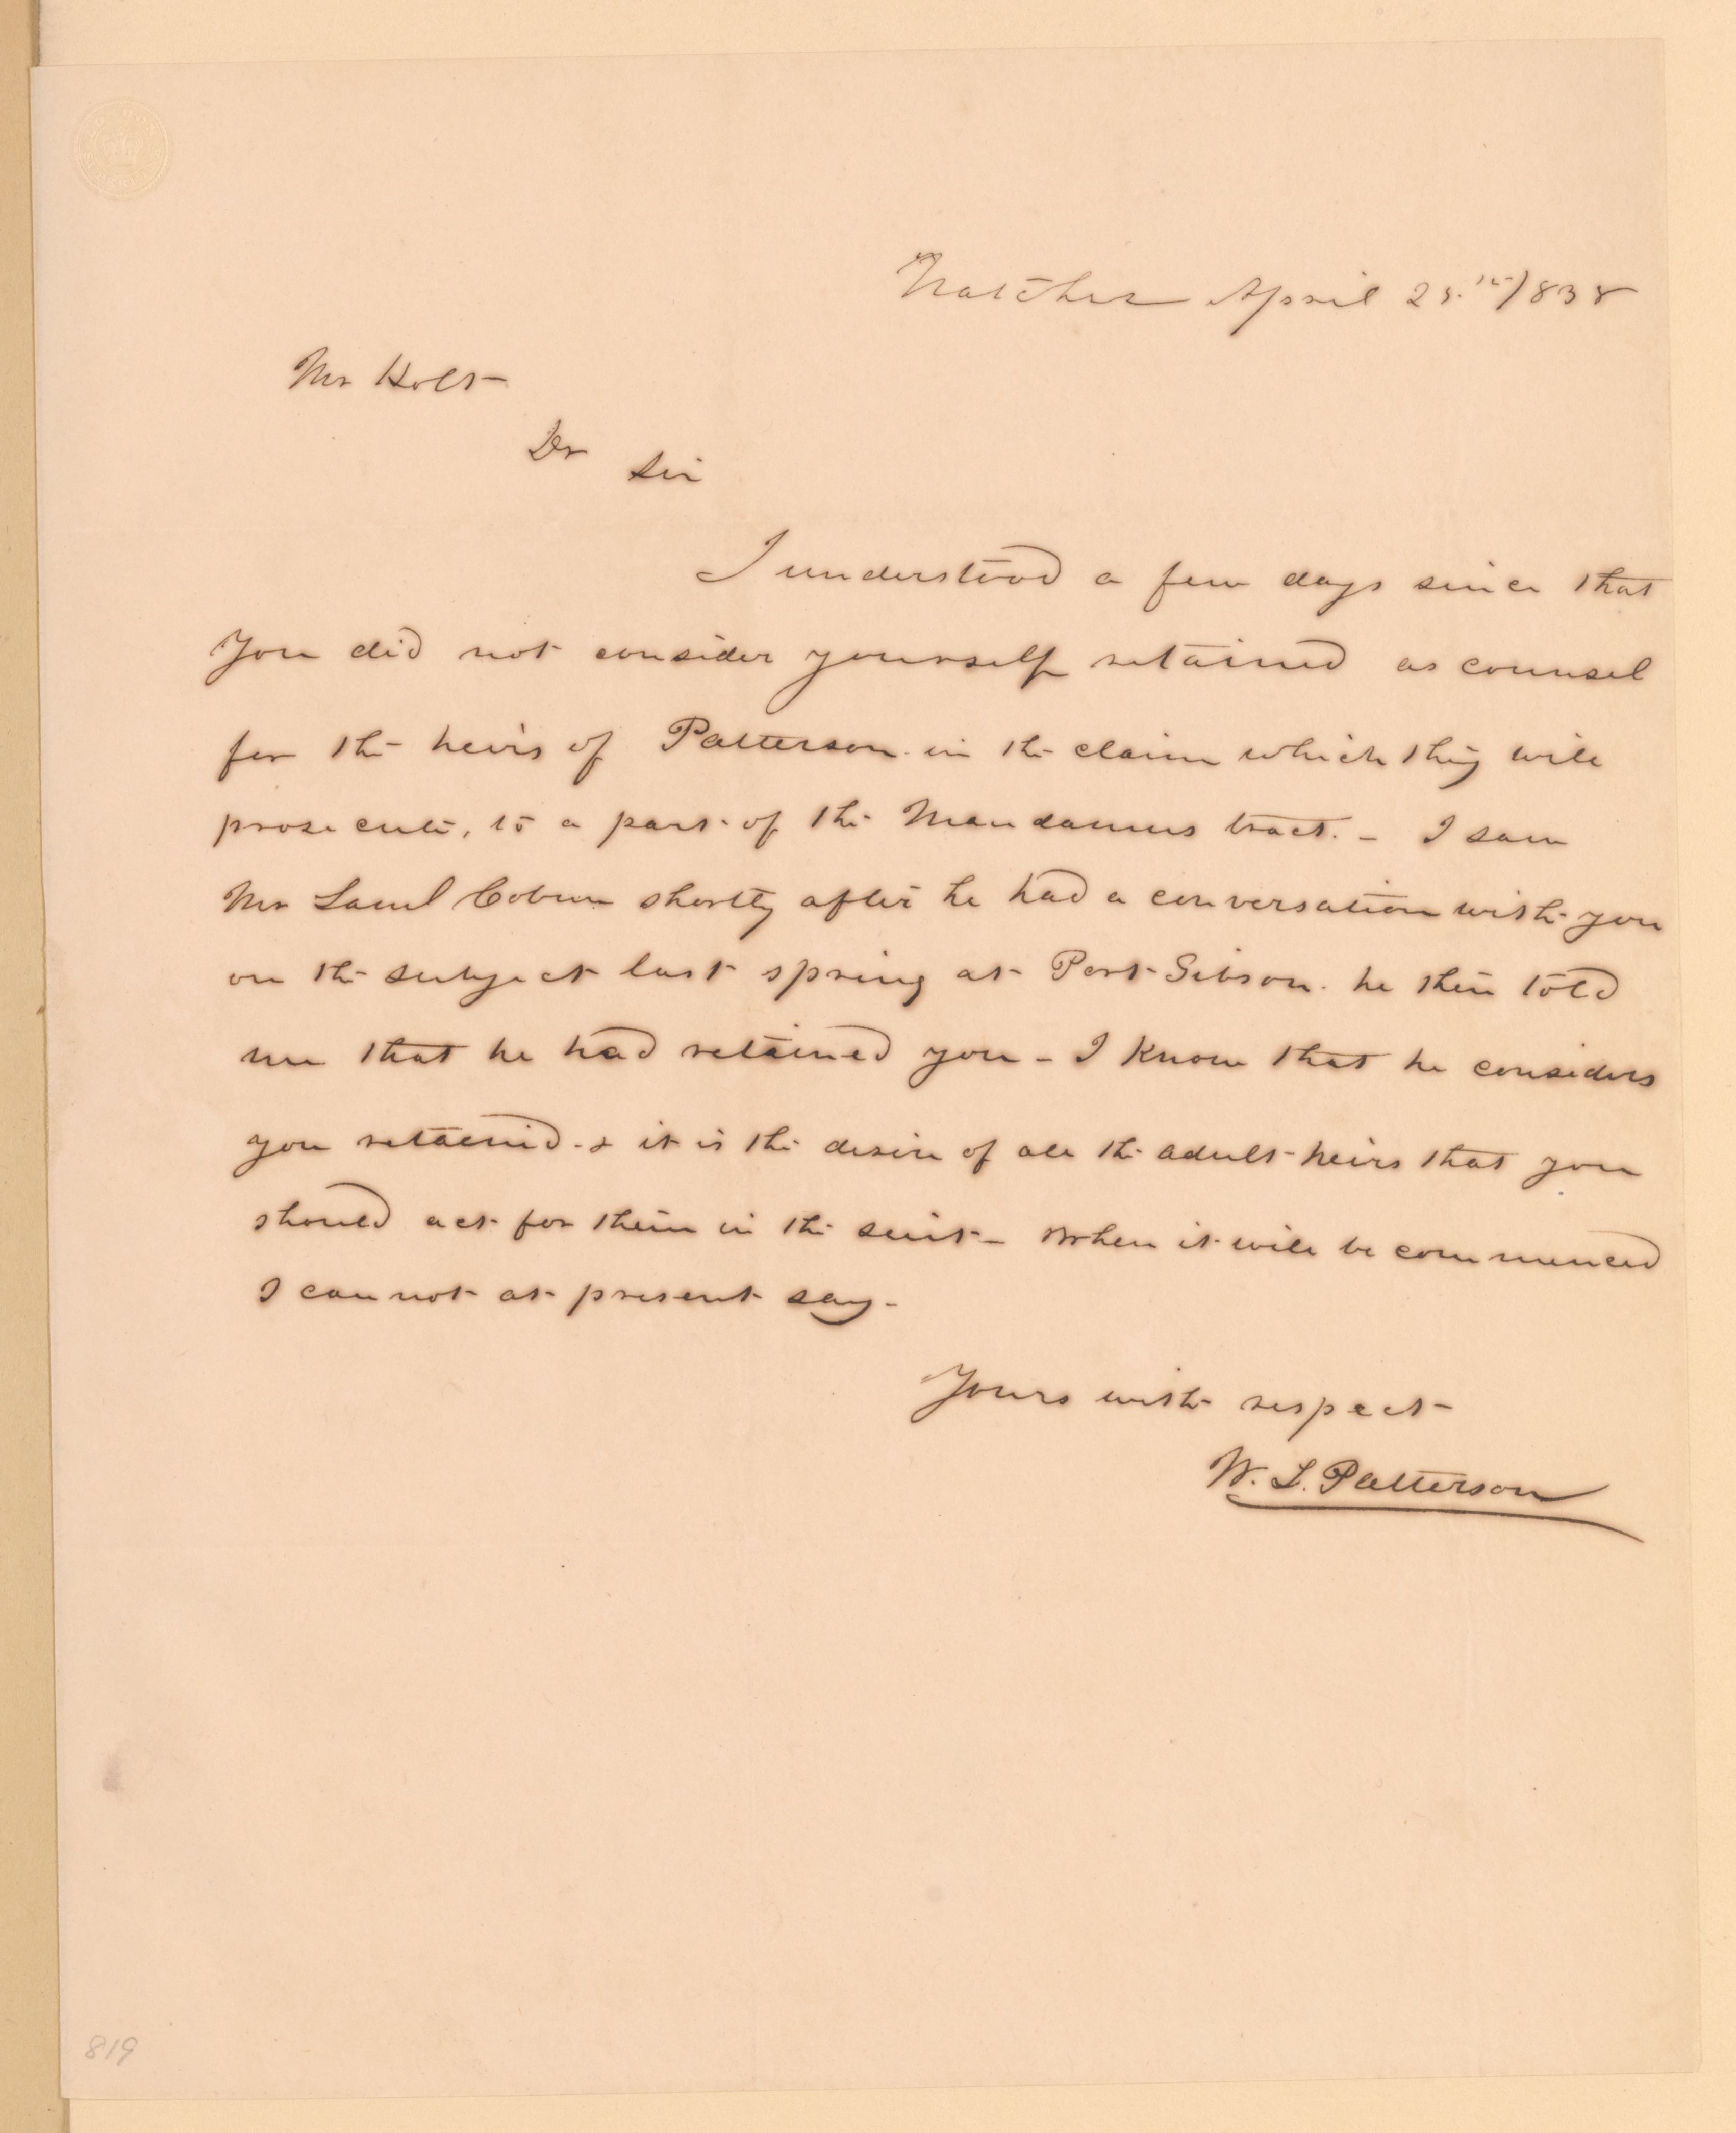 Natchez April 25.th/838
Mr Holt
Dr Sir
I understood a few days since that
you did not consider yourself retained as counsel
for the heirs of Patterson in the claim which they will
prosecute, to a part of the Mandamus tract. - I saw
Mr Saml Cobun shortly after he had a conversation with you
on the subject last spring at Port-Gibson. he then told
me that he had retained you - I know that he considers
you retained. & it is the desire of all the adult-heirs that you
should act for them in the suit - When it will be commenced
I can not at present say -
Yours with respect
W. L. Patterson
819